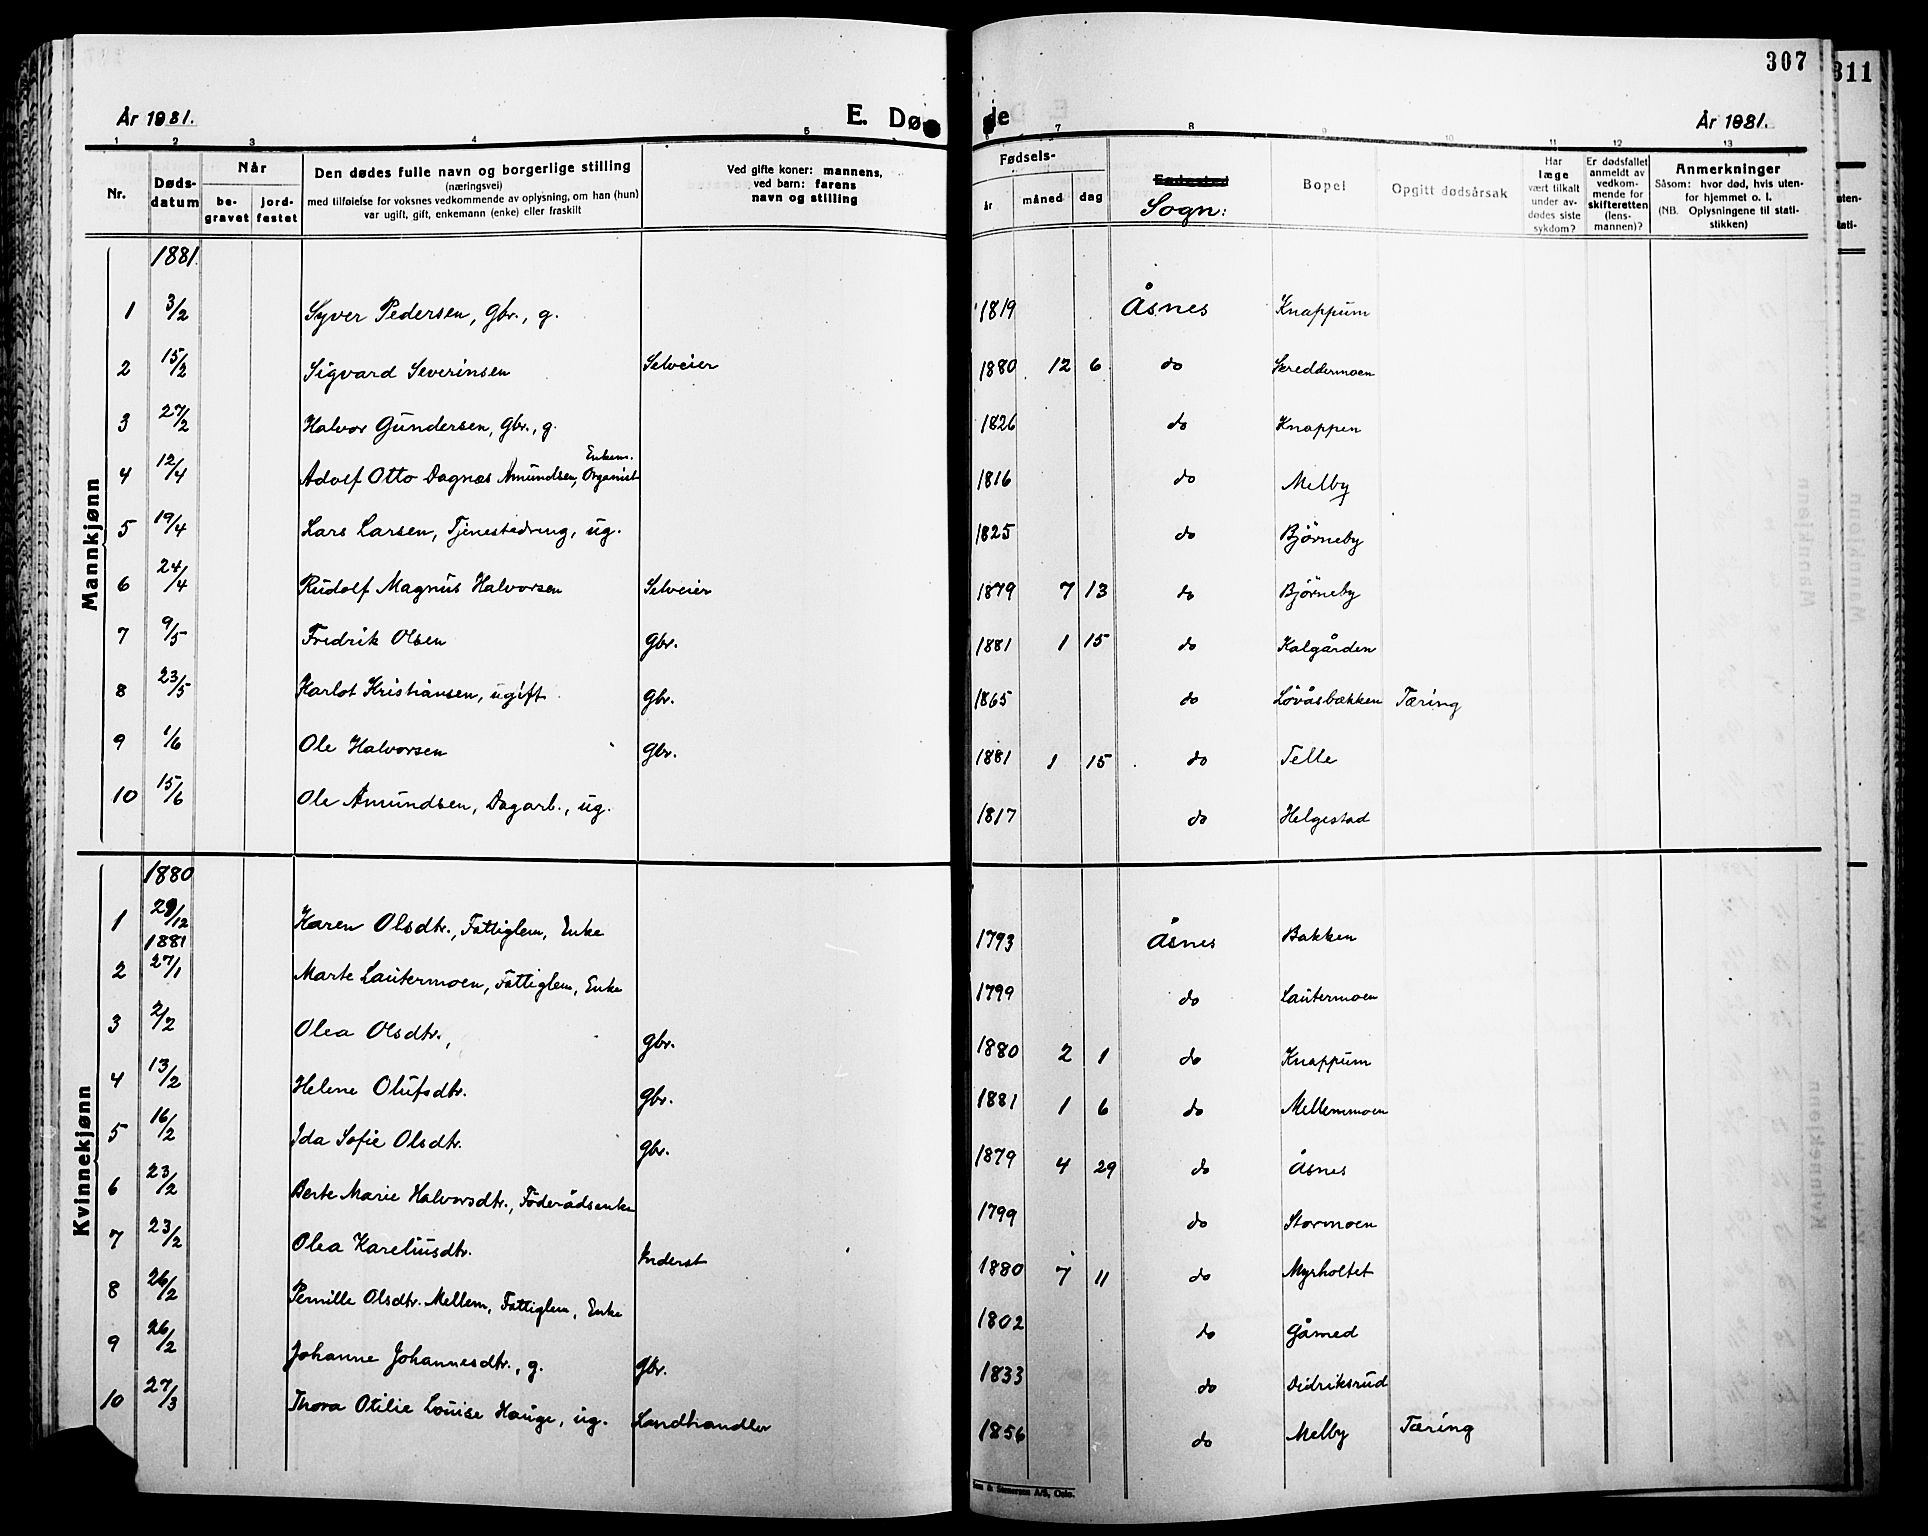 307
311
År 1881.
E. Dø de
År 1881.
1 2 3 4 5 6 7 8 9 10 11 12 13
Nr.
Døds-
datum
Når
be-
gravet
jord-
festet
Den dødes fulle navn og borgerlige stilling
(næringsvei)
med tilføielse for voksnes vedkommende av oplysning, om han (hun)
var ugift, gift, enkemann (enke) eller fraskilt
Ved gifte koner: mannens,
ved barn: farens
navn og stilling
Fødsels-
år måned dag
Fødested
Sogn:
Bopel
Opgitt dødsårsak
Har
læge
vært tilkalt
under av-
dødes siste
sykdom?
Er dødsfallet
anmeldt av
vedkom-
mende for
skifteretten
(lens-
mannen)?
Anmerkninger
Såsom: hvor død, hvis uten-
for hjemmet o. l.
(NB. Oplysningene til stati-
stikken)
uten-
tati-
Mannkjønn
1881.
1 3/2 Syver Pedersen, Gbr., g. 1819 Åsnes Knappum
2 15/2 Sigvard Severinsen Selveier 1880 12 6 do Skreddermoen
3 27/2 Halvor Gundersen, Gbr., g. 1826 do Knappen
Enkem.
4 12/4 Adolf Otto Dagnæs Amundsen, Organist 1816 do Melby
5 19/4 Lars Larsen, Tjenestedreng, ug. 1825 do Bjørneby
6 24/4 Rudolf Magnus Halvorsen Selveier 1879 7 13 do Bjørneby
7 9/5 Fredrik Olsen Gbr. 1881 1 15 do Kalgården
8 23/5 Karlot Kristiansen, ugift Gbr. 1865 do Løvåsbækken Tæring
9 1/6 Ole Halvorsen Gbr. 1881 1 15 do Telle
10 15/6 Ole Amundsen, Dagarb., ug. 1817 do Helgestad
Kvinnekjønn
1880
1 29/12 Karen Olsdtr., Fattiglem, Enke 1793 Åsnes Bakken
1881
2 27/1 Marte Lautermoen, Fattiglem, Enke 1799 do Lautermoen
3 2/2 Olea Olsdtr., Gbr. 1880 2 1 do Knappum
4 13/2 Helene Olufsdtr. Gbr. 1881 1 6 do Mellemmoen
5 16/2 Ida Sofie Olsdtr. Gbr. 1879 4 29 do Åsnes
6 23/2 Berte Marie Halvorsdtr., Föderådsenke 1799 do Stormoen
7 23/2 Olea Kareliusdtr. Inderst 1880 7 11 do Myrholtet
8 26/2 Pernille Olsdtr. Mellem, Fattiglem, Enke 1802 do Gåmed
9 26/2 Johanne Johannesdtr., g. Gbr. 1833 do Didriksrud
10 27/3 Thora Otilie Louise Hauge, ug. Landhandler 1856 do Melby Tæring
A/S, Oslo.